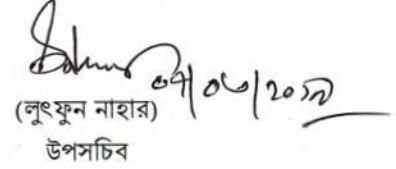 ০৭/০৩/২০১৯
(লুৎফুন নাহার)
উপসচিব